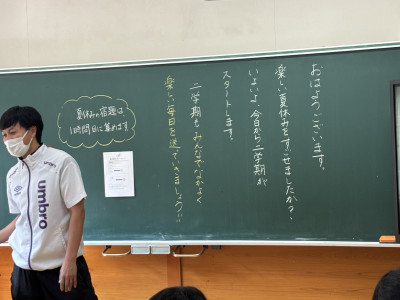 おはようございます。
楽しい夏休みをすごせましたか？
いよいよ、今日から二学期が
スタートします。
二学期もみんなでなかよく
楽しい毎日を送っていきましょう!!
夏休みの宿題は
1時間目に集めます
umbro